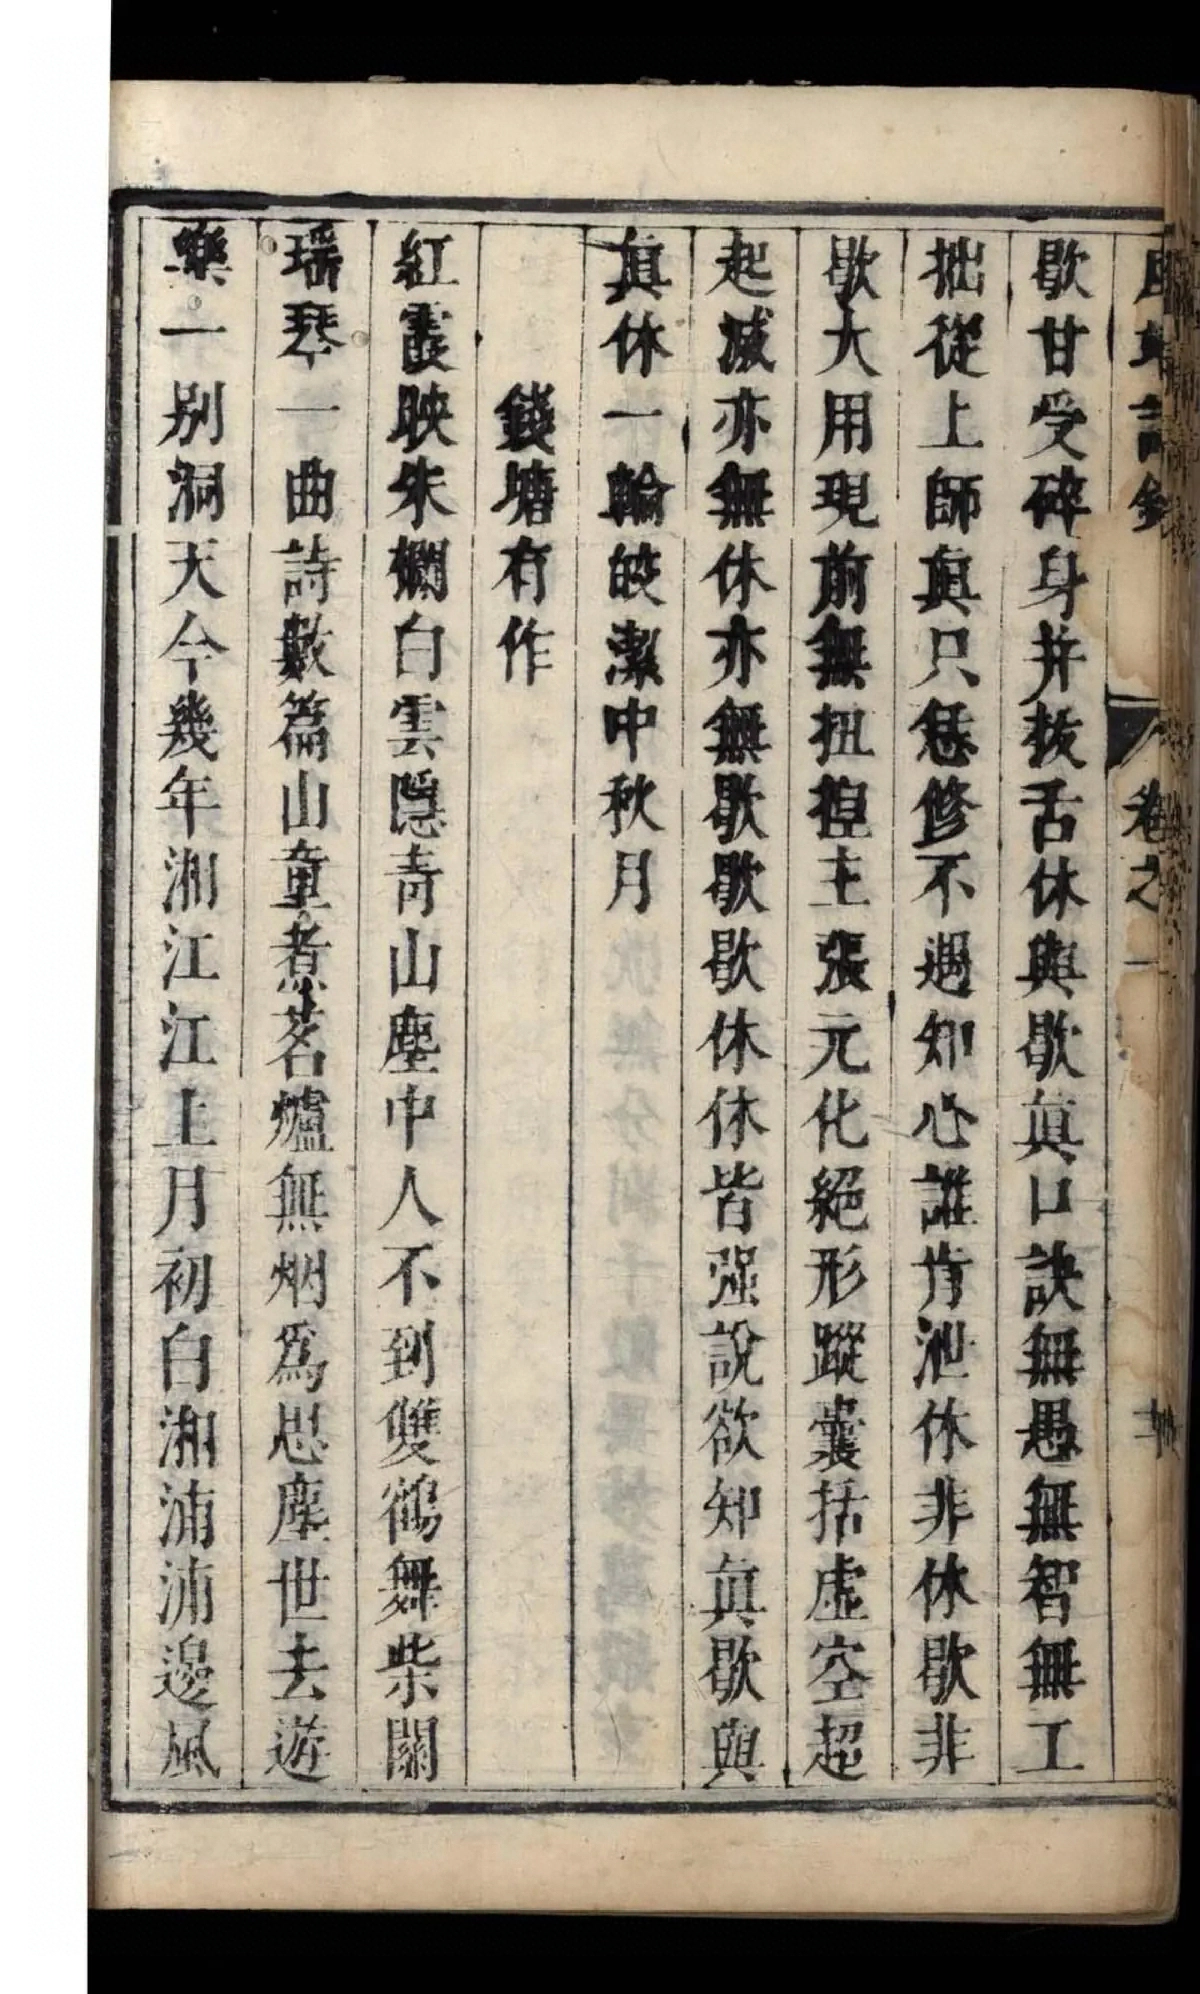 卷之一
歇甘受碎身并拔舌休與歇眞口訣無愚無智無工
拙從上師眞只恁修不遇知心誰肯泄休非休歇非
歇大用現前無扭揑主張元化絕形蹤囊括虛空超
起滅亦無休亦無歇歇歇休休皆强說欲知眞歇與
眞休一輪皎潔中秋月
錢塘有作
紅霞映朱欄白雲隱青山塵中人不到雙鶴舞柴關
瑶琴一曲詩數篇山童煮茗爐無烟爲思塵世去遊
樂一別洞天今幾年湘江江上月初白湘浦浦邊風